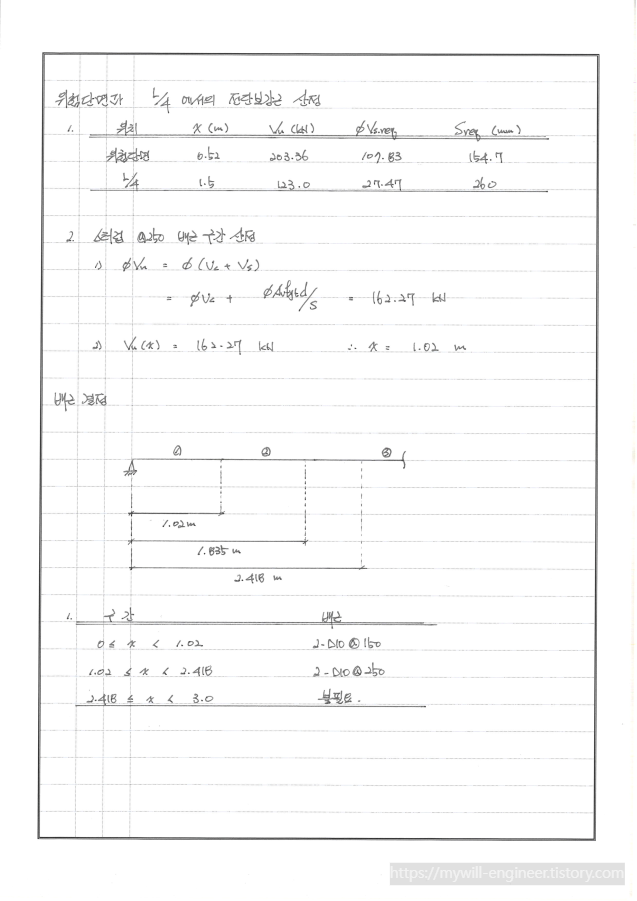 위험단면과 L/4 에서의 전단보강근 산정
1. 위치 x (m) Vu (kN) φVs.req Sreq (mm)
위험단면 0.52 203.36 107.83 154.7
L/4 1.5 123.0 27.47 260
2. 스터럽 @250 배근 구간 산정
1) φVn = φ(Vc + Vs)
= φVc + φAvfytd/s = 162.27 kN
2) Vu(x) = 162.27 kN ∴ x = 1.02 m
배근 결정
① ② ③
1.02m
1.835 m
2.418 m
1. 구간 배근
0 ≤ x < 1.02 2-D10 @150
1.02 ≤ x < 2.418 2-D10 @250
2.418 ≤ x < 3.0 불필요.
https://mywill-engineer.tistory.com